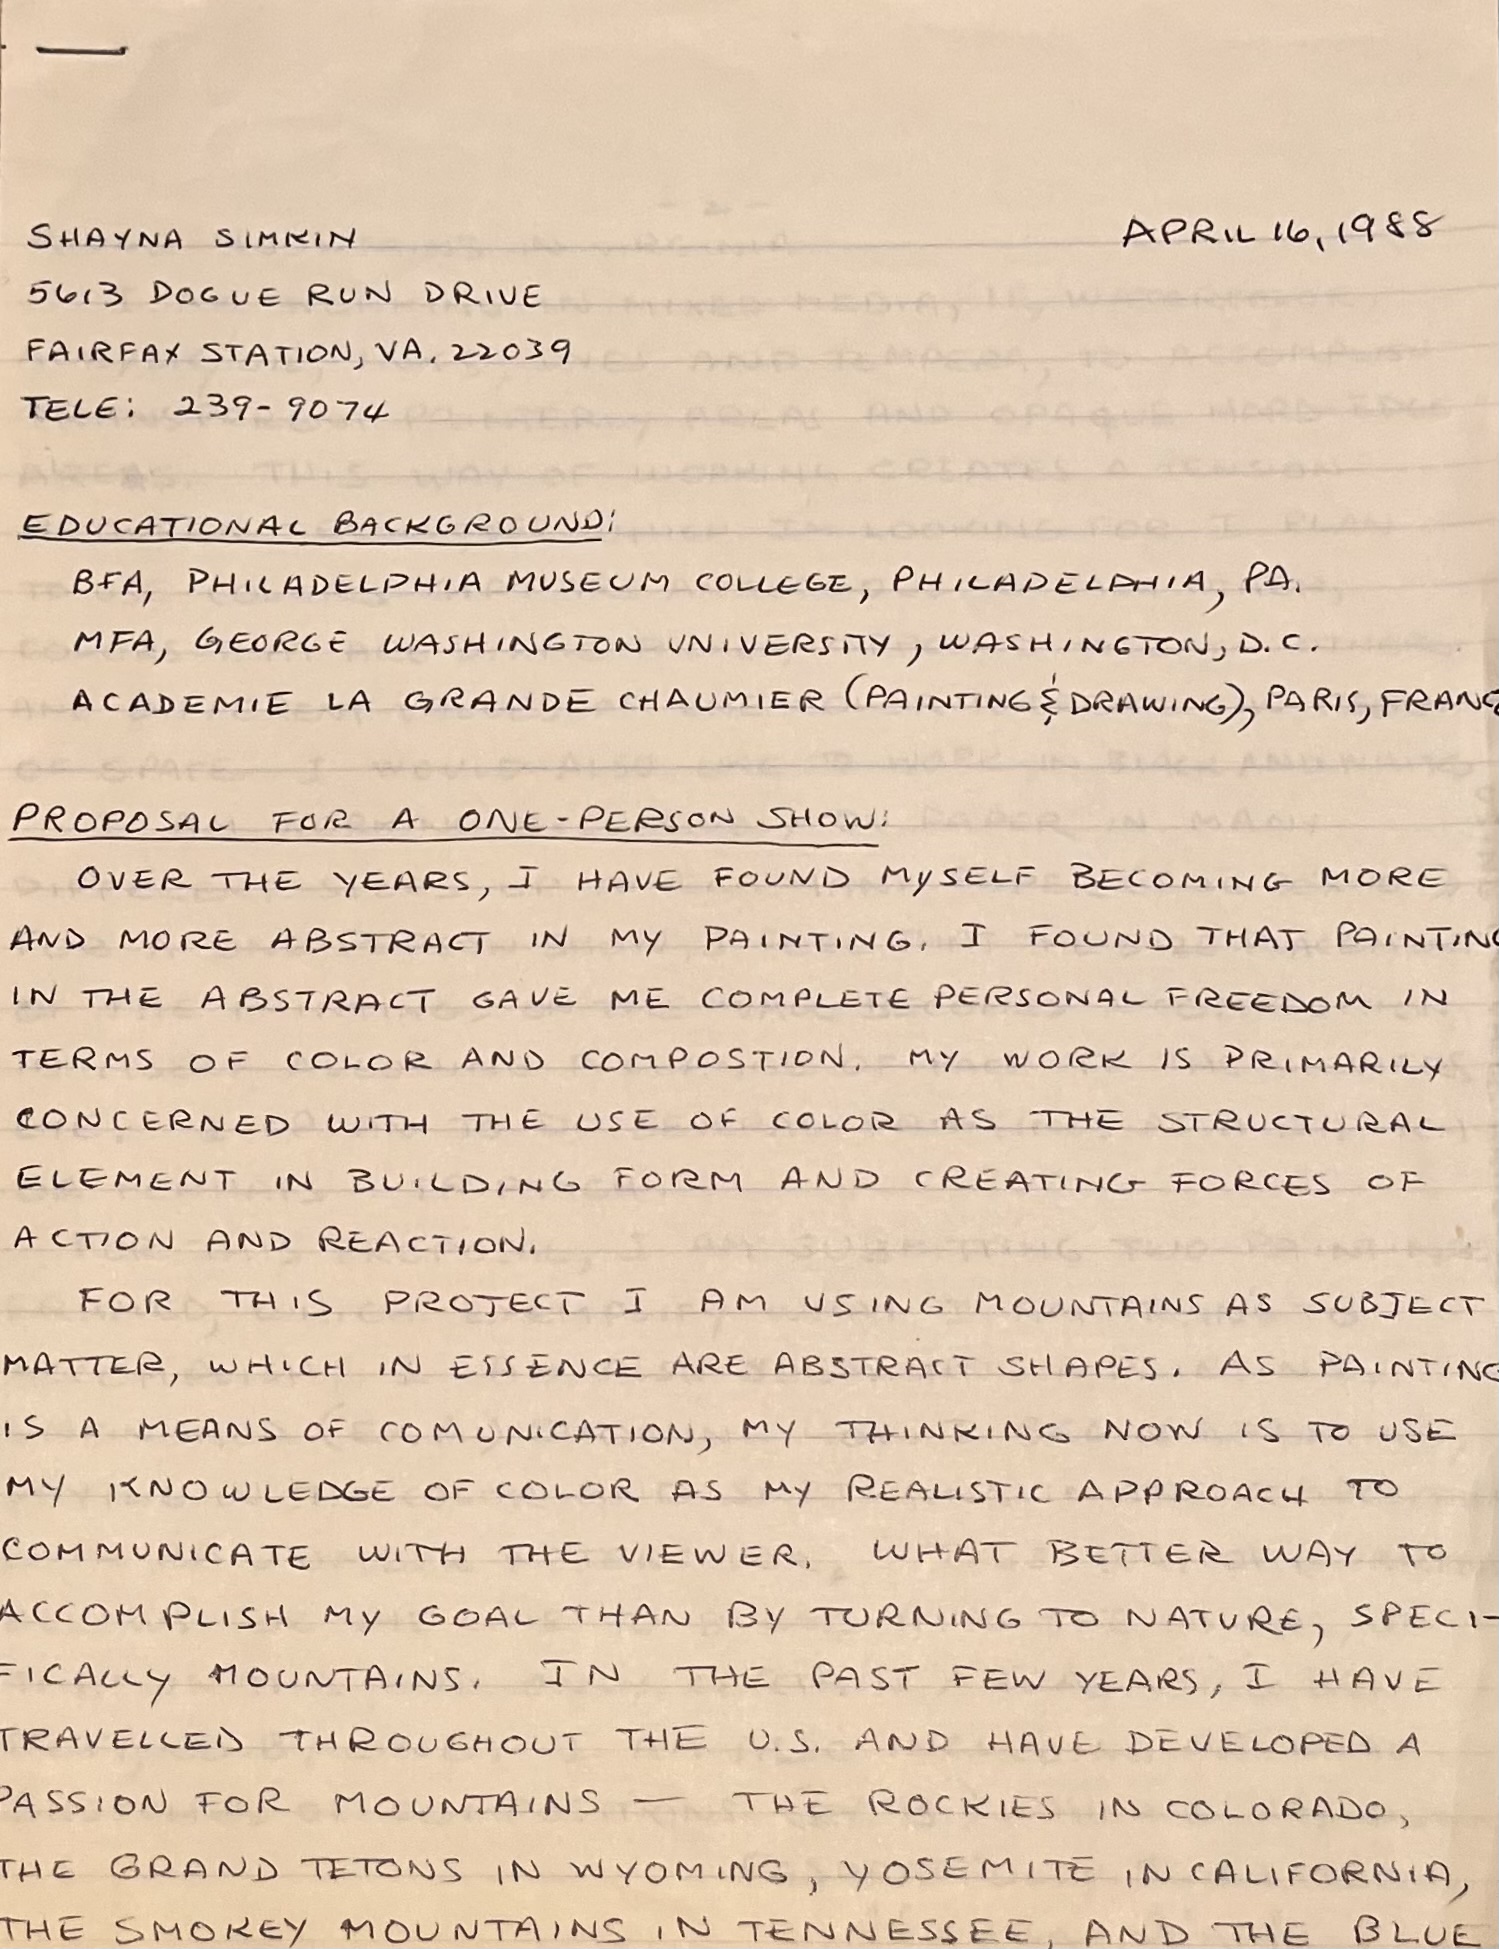 SHAYNA SIMKIN
APRIL 16, 1988
5613 DOGUE RUN DRIVE
FAIRFAX STATION, VA. 22039
TELE: 239-9074
EDUCATIONAL BACKGROUND:
BFA, PHILADELPHIA MUSEUM COLLEGE, PHILADELPHIA, PA.
MFA, GEORGE WASHINGTON UNIVERSITY, WASHINGTON, D.C.
ACADEMIE LA GRANDE CHAUMIER (PAINTING & DRAWING), PARIS, FRANC
PROPOSAL FOR A ONE-PERSON SHOW:
OVER THE YEARS, I HAVE FOUND MYSELF BECOMING MORE
AND MORE ABSTRACT IN MY PAINTING. I FOUND THAT PAINTING
IN THE ABSTRACT GAVE ME COMPLETE PERSONAL FREEDOM IN
TERMS OF COLOR AND COMPOSTION. MY WORK IS PRIMARILY
CONCERNED WITH THE USE OF COLOR AS THE STRUCTURAL
ELEMENT IN BUILDING FORM AND CREATING FORCES OF
ACTION AND REACTION.
FOR THIS PROJECT I AM USING MOUNTAINS AS SUBJECT
MATTER, WHICH IN ESSENCE ARE ABSTRACT SHAPES. AS PAINTING
IS A MEANS OF COMUNICATION, MY THINKING NOW IS TO USE
MY KNOWLEDGE OF COLOR AS MY REALISTIC APPROACH TO
COMMUNICATE WITH THE VIEWER. WHAT BETTER WAY TO
ACCOMPLISH MY GOAL THAN BY TURNING TO NATURE, SPECI-
FICALLY MOUNTAINS. IN THE PAST FEW YEARS, I HAVE
TRAVELLED THROUGHOUT THE U.S. AND HAVE DEVELOPED A
PASSION FOR MOUNTAINS — THE ROCKIES IN COLORADO,
THE GRAND TETONS IN WYOMING, YOSEMITE IN CALIFORNIA,
THE SMOKEY MOUNTAINS IN TENNESSEE, AND THE BLUE